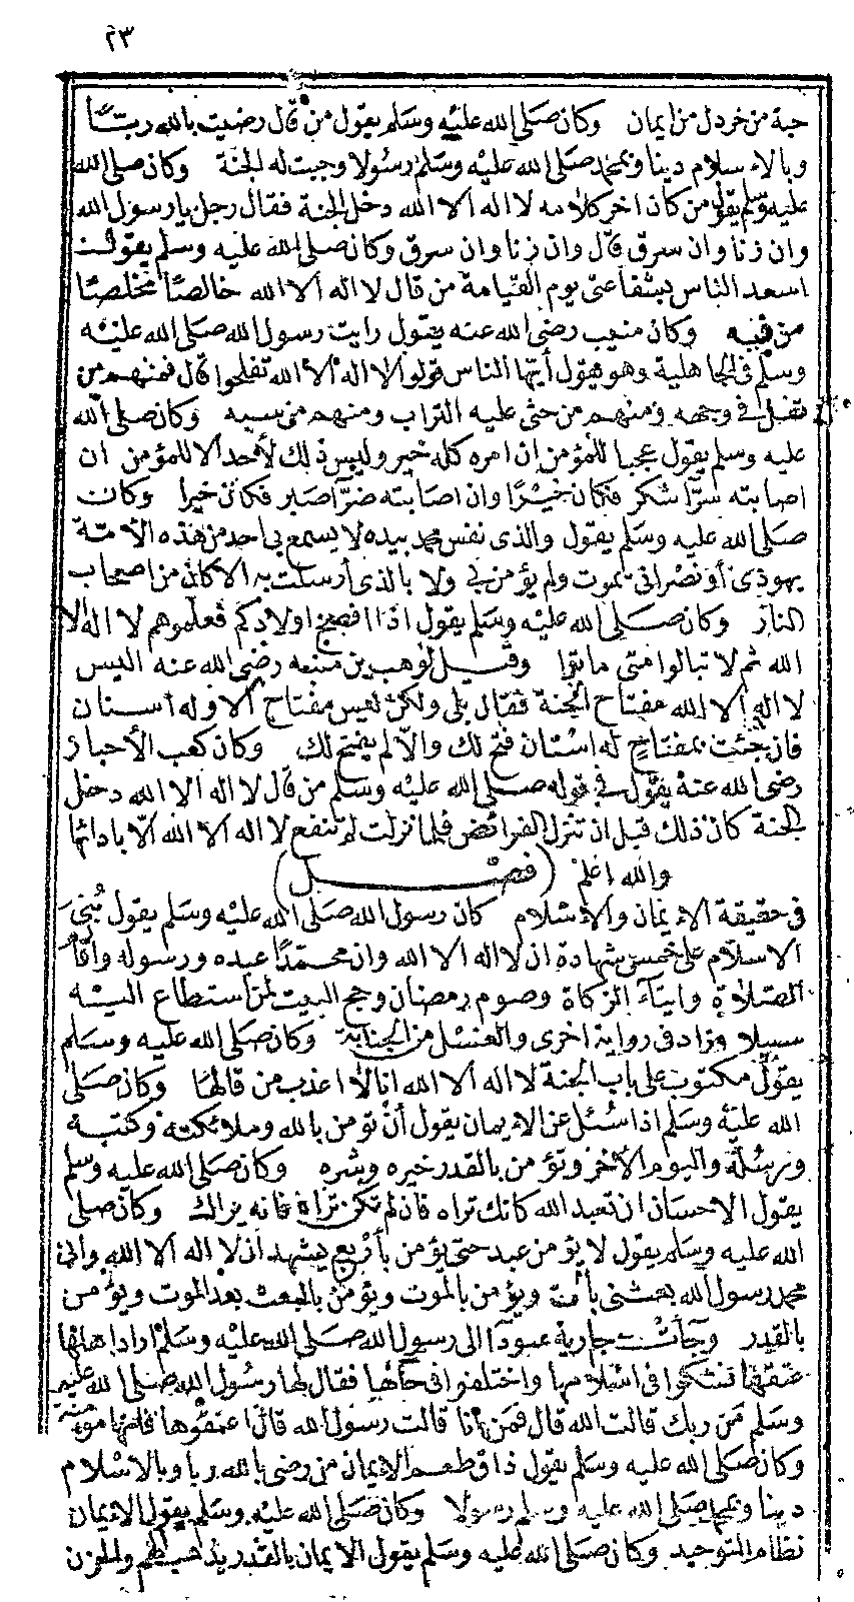 ٢٣
حبة من خردل من ايمان وكان صلى الله عليه وسلم يقول من قال رضيت بالله ربا
وبالاسلام دينا وبمحمد صلى الله عليه وسلم رسولا وجبت له الجنة وكان صلى الله
عليه وسلم يقول من كان اخر كلامه لا اله الا الله دخل الجنة فقال رجل يا رسول الله
وان زنا وان سرق قال وان زنا وان سرق وكان صلى الله عليه وسلم يقول
اسعد الناس بشفاعتى يوم القيامة من قال لا اله الا الله خالصا مخلصا
من قلبه وكان منيب رضى الله عنه يقول رايت رسول الله صلى الله عليه
وسلم فى الجاهلية وهو يقول أيها الناس قولوا لا اله الا الله تفلحوا قال فمنهم من
تفل فى وجهه ومنهم من حثى عليه التراب ومنهم من سبه وكان صلى الله
عليه وسلم يقول عجبا للمؤمن ان امره كله خير وليس ذلك لأحد الا للمؤمن ان
اصابته سرآ شكر فكان خيرا وان اصابته ضرآ صبر فكان خيرا وكان
صلى الله عليه وسلم يقول والذى نفس محمد بيده لا يسمع بى احد من هذه الامة
يهودى أو نصرانى ثم يموت ولم يؤمن بى ولا بالذى أرسلت به الا كان من اصحاب
النار وكان صلى الله عليه وسلم يقول اذا افصح اولادكم فعلموهم لا اله الا
الله ثم لا تبالوا متى ماتوا وقيل لوهب بن منبه رضى الله عنه اليس
لا اله الا الله مفتاح الجنة فقال بلى ولكن ليس مفتاح الا وله أسنان
فان جئت بمفتاح له اسنان فتح لك والا لم يفتح لك وكان كعب الأحبار
رضى الله عنه يقول فى قوله صلى الله عليه وسلم من قال لا اله الا الله دخل
الجنة كان ذلك قبل ان تنزل الفرائض فلما نزلت لم تنفع لا اله الا الله الا بادائها
والله اعلم (فصل)
فى حقيقة الايمان والاسلام كان رسول الله صلى الله عليه وسلم يقول بنى
الاسلام على خمس شهادة ان لا اله الا الله وان محمدا عبده ورسوله واقام
الصلاة وايتاء الزكاة وصوم رمضان وحج البيت لمن استطاع اليه
سبيلا وزاد فى رواية اخرى والغسل من الجنابة وكان صلى الله عليه وسلم
يقول مكتوب على باب الجنة لا اله الا الله انا لا اعذب من قالها وكان صلى
الله عليه وسلم اذا سئل عن الايمان يقول أن تومن بالله وملائكته وكتبه
ورسله واليوم الاخر وتؤمن بالقدر خيره وشره وكان صلى الله عليه وسلم
يقول الاحسان ان تعبد الله كانك تراه فان لم تكن تراه فانه يراك وكان صلى
الله عليه وسلم يقول لا يؤمن عبد حتى يؤمن بأربع يشهد ان لا اله الا الله وانى
محمد رسول الله بعثنى بالحق ويؤمن بالموت ويؤمن بالبعث بعد الموت ويؤمن
بالقدر وجآت جارية عبودا الى رسول الله صلى الله عليه وسلم اراد اهلها
عتقها فشكوا فى اسلامها واختلفوا فى حالها فقال لها رسول الله صلى الله عليه
وسلم من ربك قالت الله قال فمن أنا قالت رسول الله قال اعتقوها فانها مومنة
وكان صلى الله عليه وسلم يقول ذاق طعم الايمان من رضى بالله ربا وبالاسلام
دينا وبمحمد صلى الله عليه وسلم رسولا وكان صلى الله عليه وسلم يقول الايمان
نظام التوحيد وكان صلى الله عليه وسلم يقول الايمان بالقدر يذهب الهم والحزن